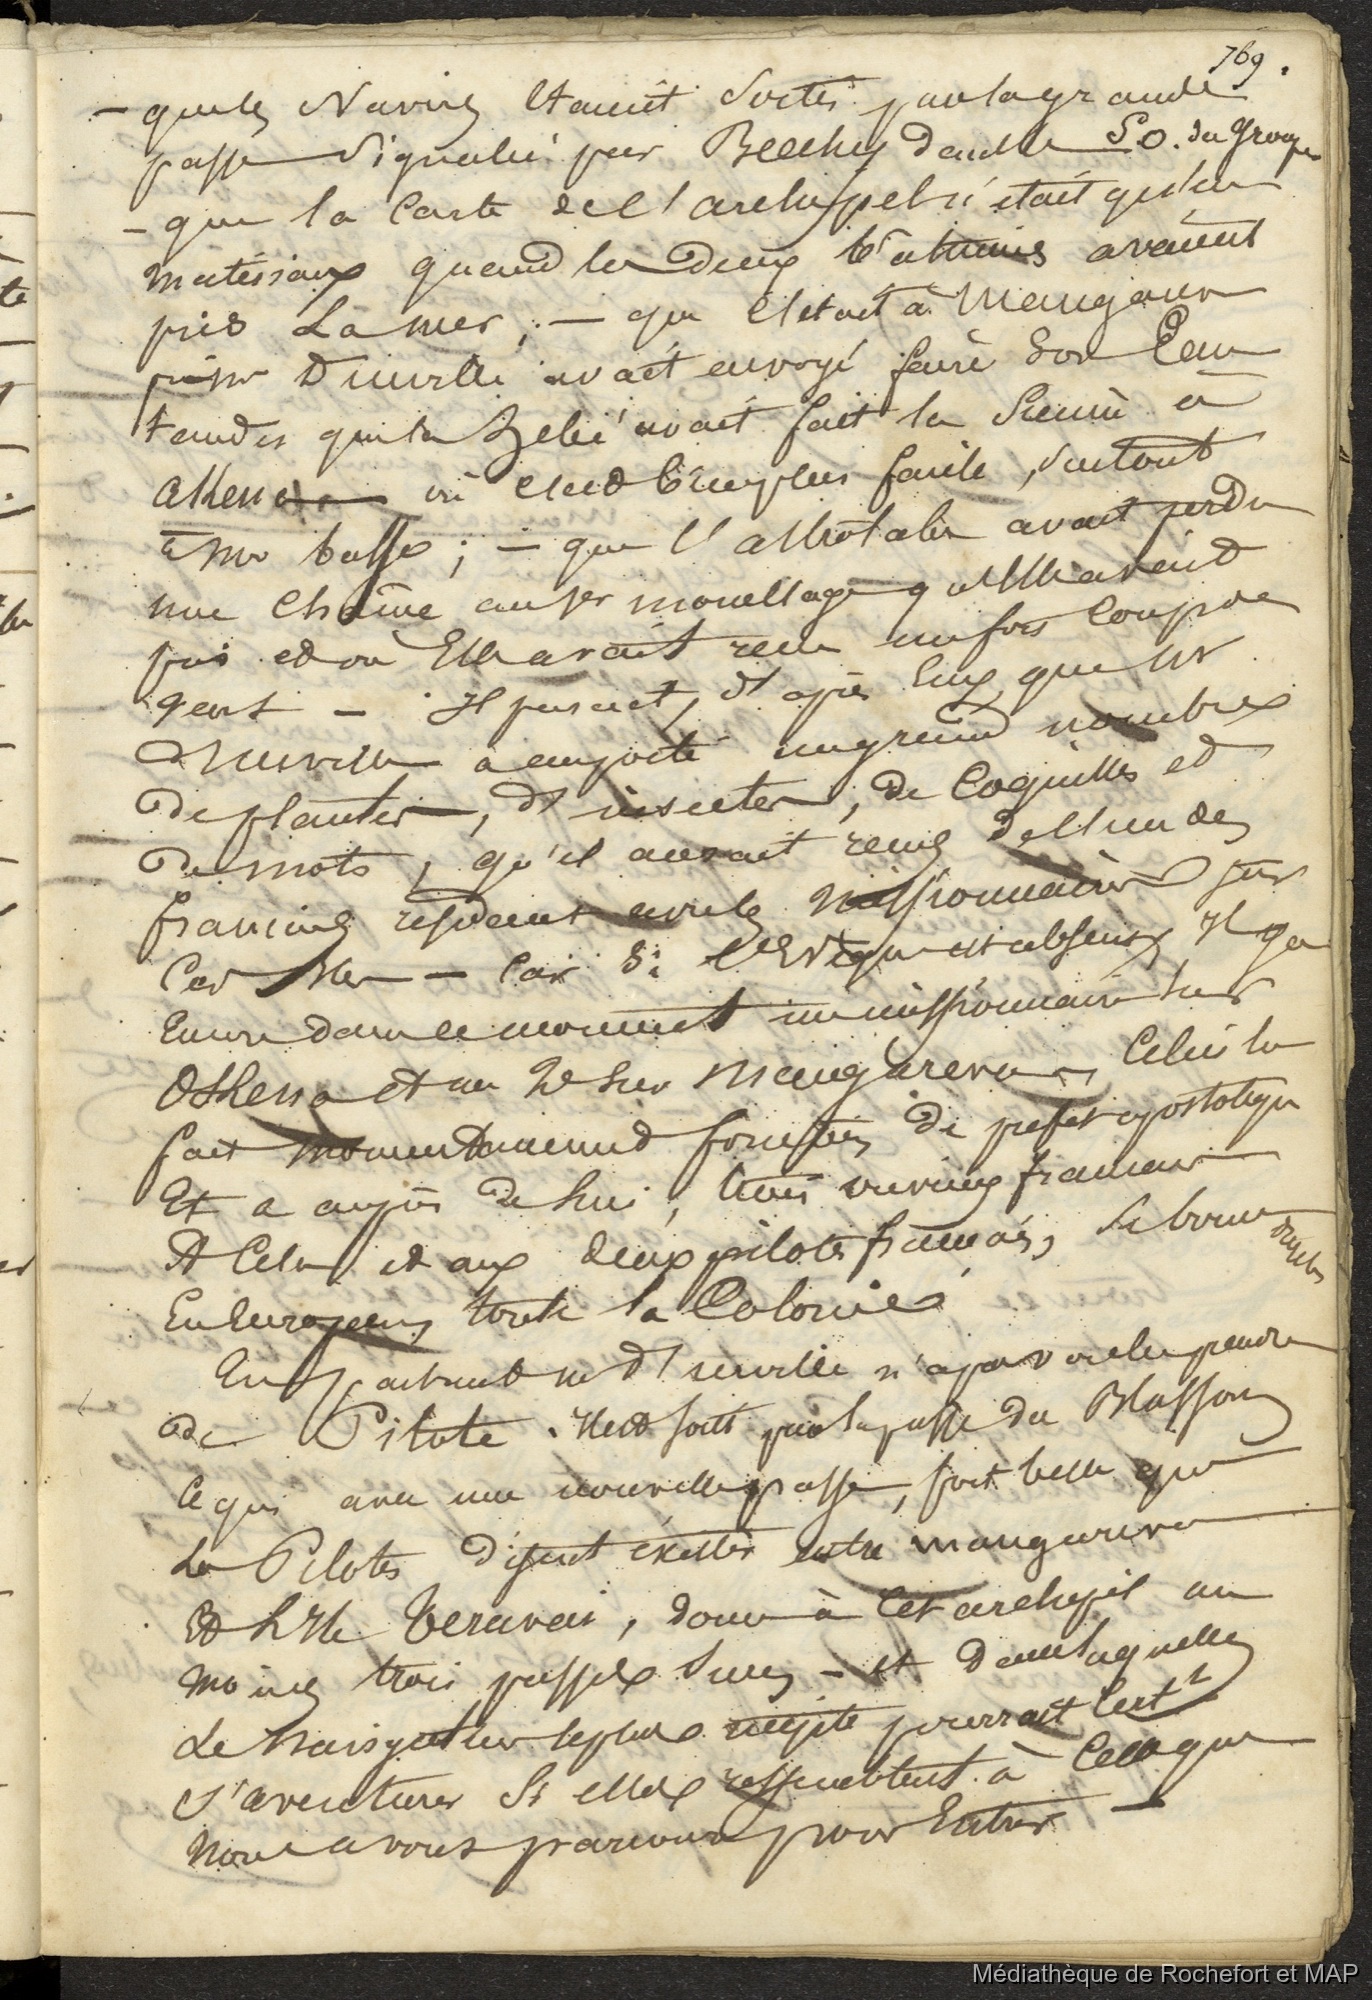 769.
– que les Navires étaient sortis par la grande
passe signalée par Beechey dans le S.O. du Groupe
– que la Carte de l'archipel n'était qu'en
matériaux quand les deux bâtiments avaient
pris la mer ; – que c'était à Mangareva
que Mr Durville avait envoyé faire son Eau
tandis que la Zélée avait fait la sienne à
Akena où elle est bien plus facile, surtout
à mer basse ; – que l'astrolabe avait perdu
une chaîne au 1er mouillage qu'elle avait
pris et où Elle avait reçu un fort coup de
vent – Il parait, d'après Eux que Mr
Durville a emporté un grand nombre
de plantes, d'insectes, de Coquilles et
de mots, qu'il aurait reçus de l'un des
francais résidents avec les Missionnaires sur
Ces Iles – Car si l'Evêque est absent, Il y a
Encore dans ce moment un missionnaire sur
O Kena et un 2e sur Mangareva, Celui la
fait momentanément fonctions de préfet apostolique
Et a auprès de lui, trois ouvriers francais
A Cela et aux deux pilotes français, se borne
En Européens toute la Colonie
En partant Mr d'urville n'a pas voulu prendre
de Pilote. Il est sorti par la passe du Blossom
Ce qui avec une nouvelle passe, fort belle que
Les Pilotes disent exister entre mangareva
Et L'Ile Teravai, donne à cet archipel au
moins trois passes sures – et dans laquelle
Le Navigateur le plus pourrait Certt
s'aventurer si elles ressemblent à Celle que
Nous avons parcourue pour Entrer –